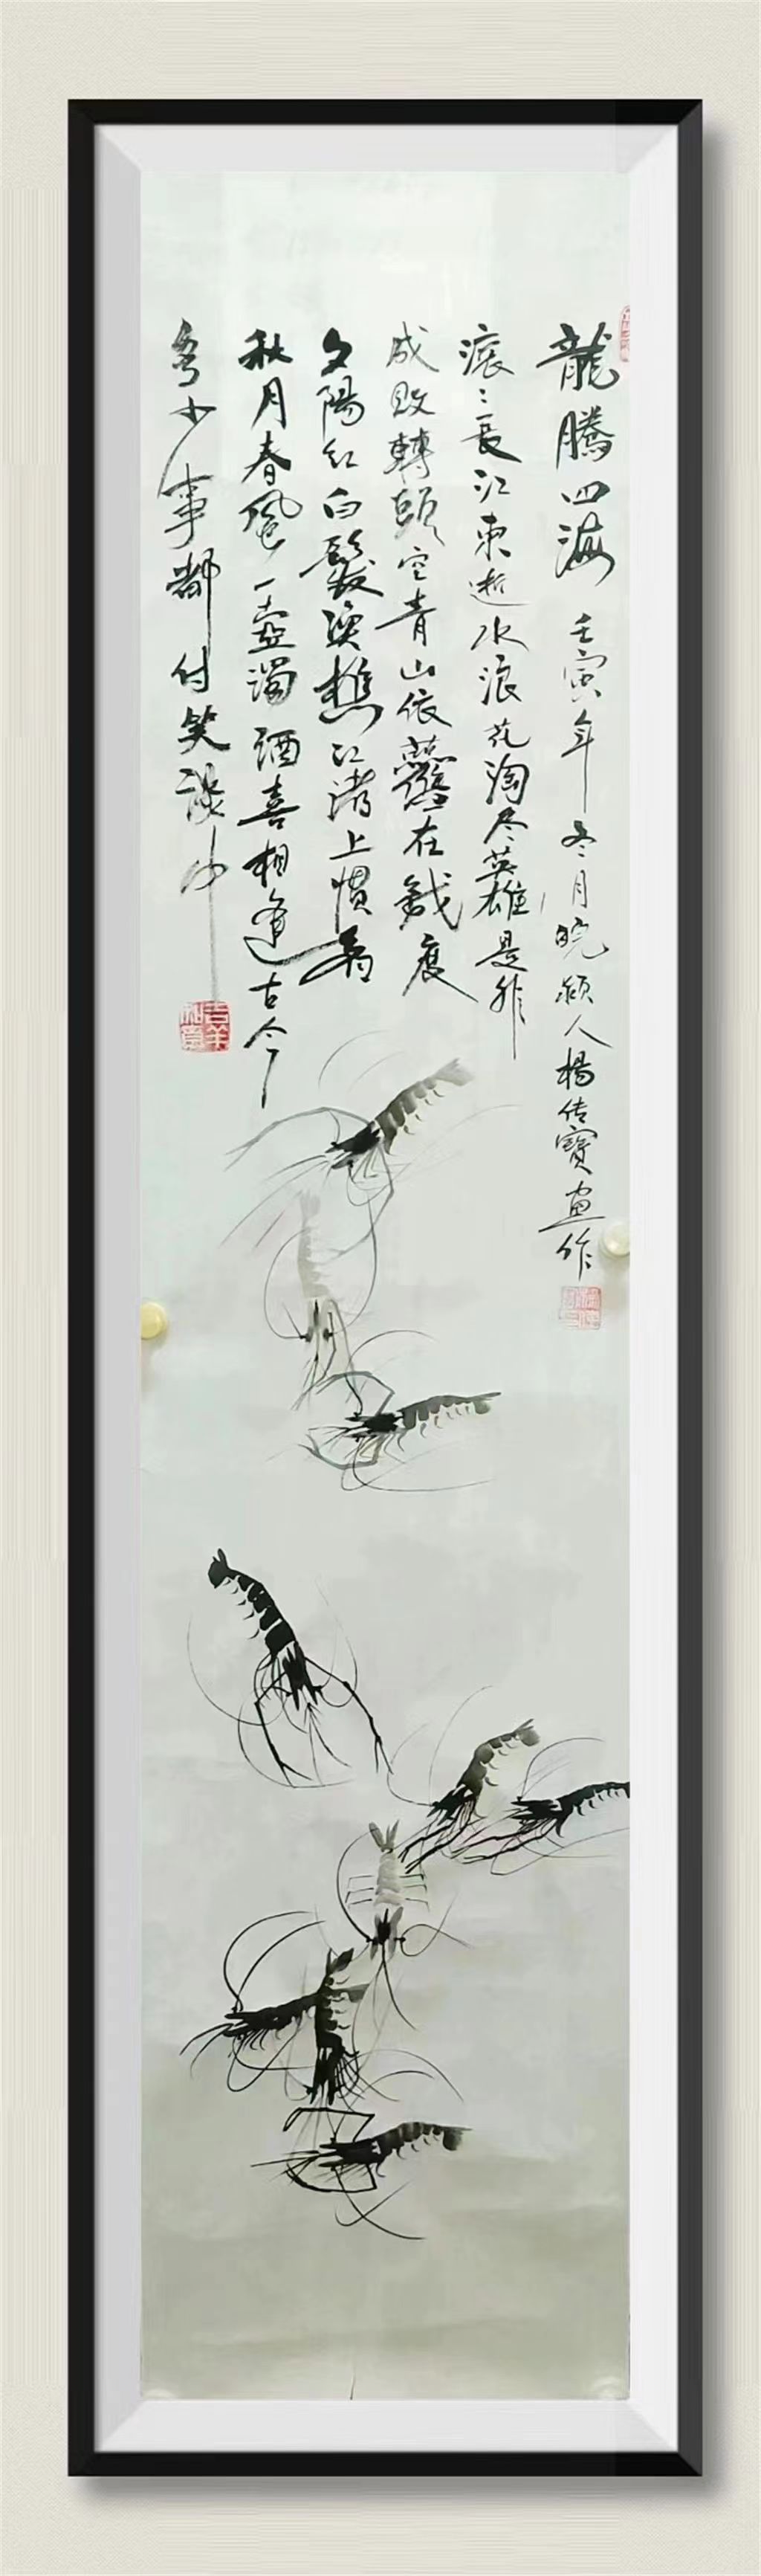 龍騰四海 壬寅年冬月皖颍人楊传寳画作
滚〻長江東逝水浪花淘尽英雄是非
成败轉頭空青山依舊在幾度
夕陽红白髮渔樵江渚上惯看
秋月春風一壺濁酒喜相逢古今
多少事都付笑談中
吉羊如意